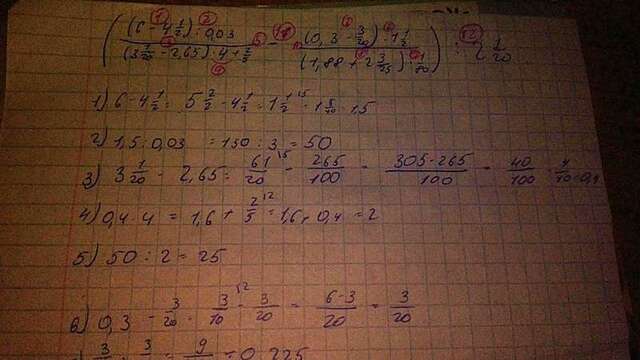 ( (6 - 4 1/2) : 0,03 / (3 1/20 - 2,65) · 4 + 2/5 - (0,3 - 3/20) · 1 1/2 / (1,88 + 2 3/25) · 1/80 ) : 2 1/20
1) 6 - 4 1/2 = 5 2/2 - 4 1/2 = 1 1/2 = 1 5/10 = 1,5
2) 1,5 : 0,03 = 150 : 3 = 50
3) 3 1/20 - 2,65 = 61/20 - 265/100 = 305-265/100 = 40/100 = 4/10 = 0,4
4) 0,4 · 4 = 1,6 + 2/5 = 1,6 + 0,4 = 2
5) 50 : 2 = 25
6) 0,3 - 3/20 = 3/10 - 3/20 = 6-3/20 = 3/20
3/ 3/ 9/ = 0,225